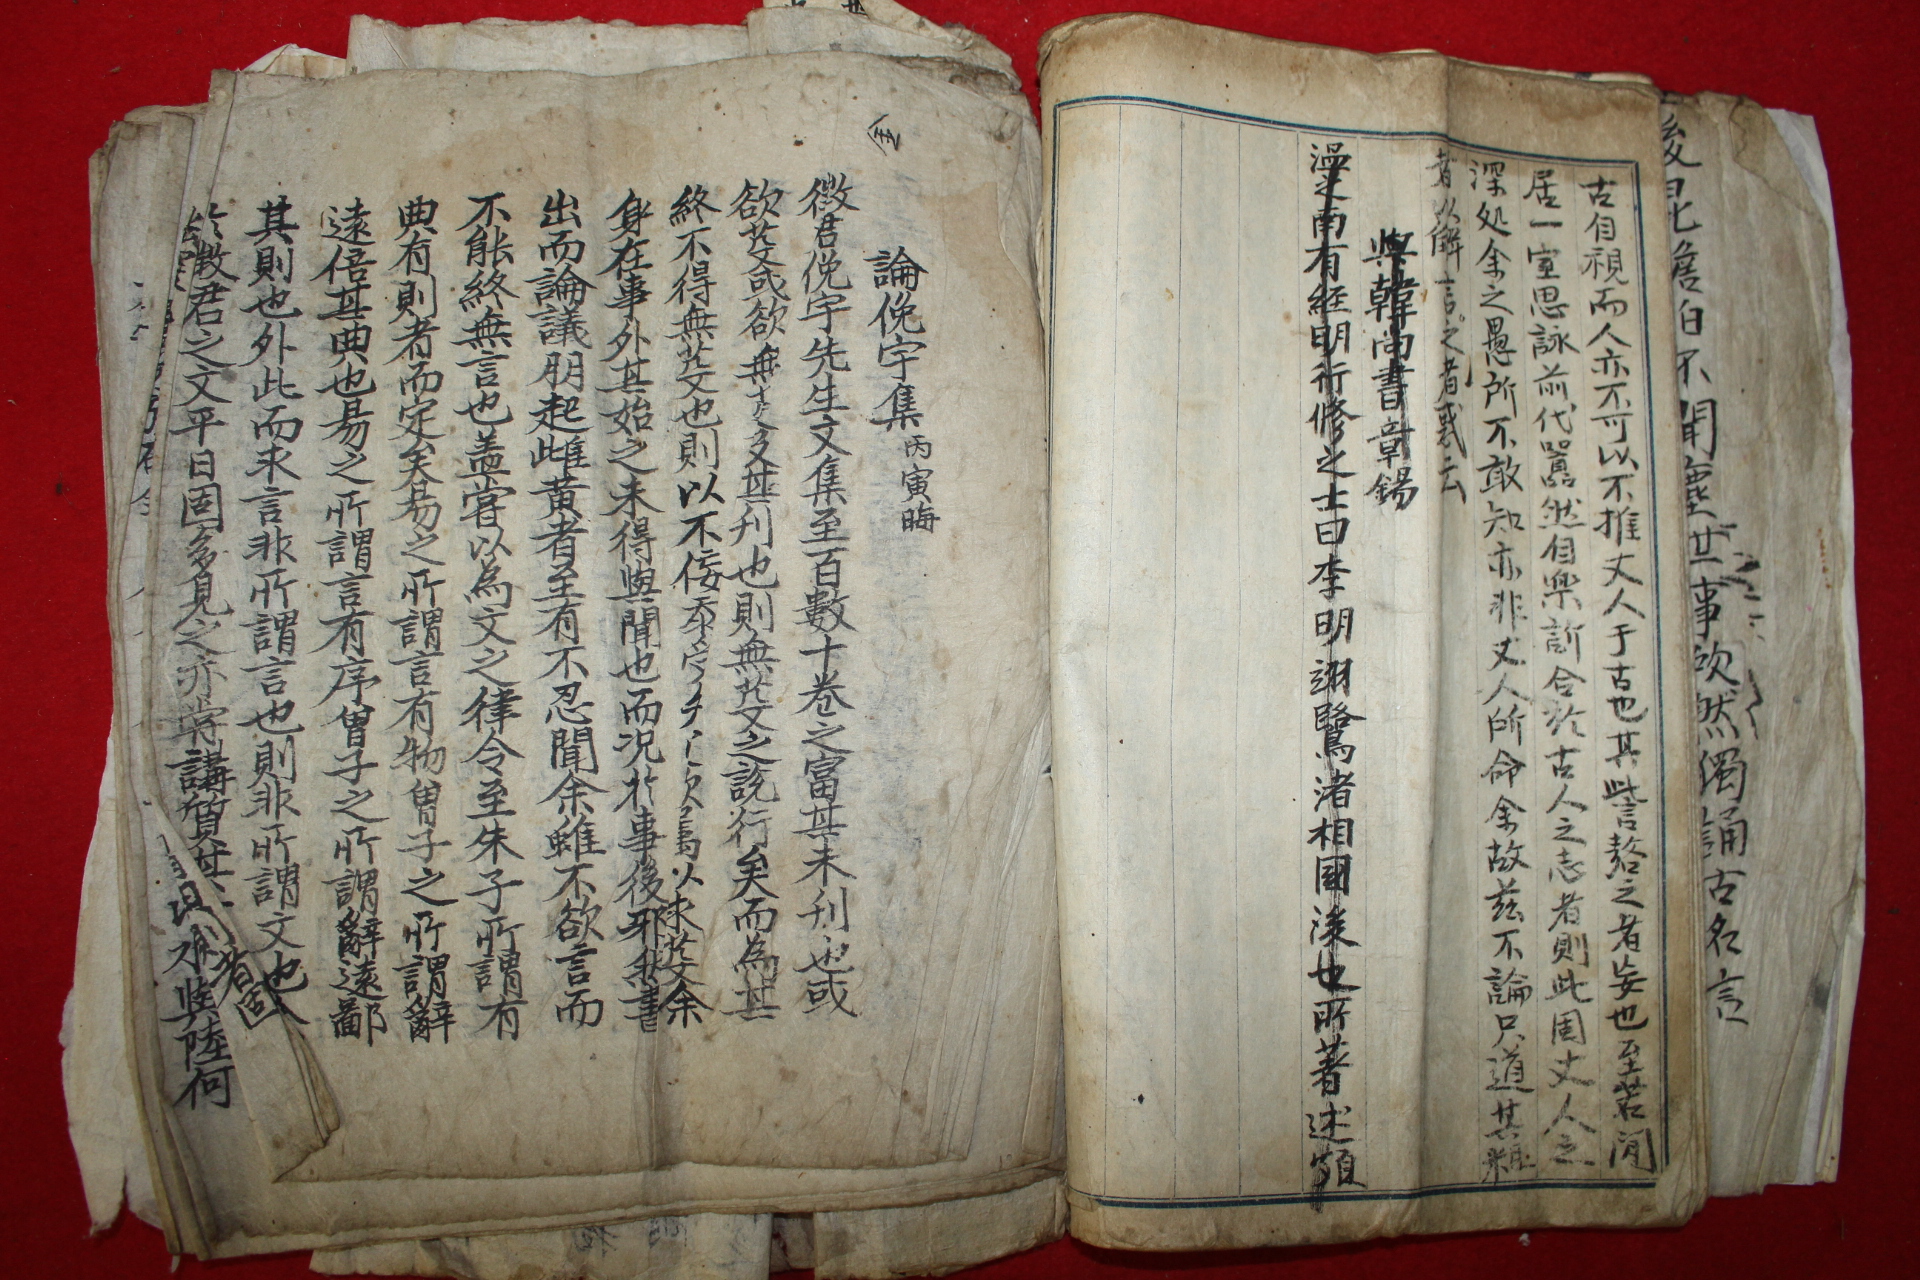 後昆詹伯不聞塵世事欣然獨誦古名言
古自視而人亦不可以不推丈人于古也其訾謷之者妄也至若閒
居一室思詠前代嘐然自樂訢合於古人之志者則此固丈人之
深処余之愚所不敢知亦非丈人所命余故玆不論只道其粗
者以解言之者惑云
與韓尙書章錫
漫之南有經明行修之士曰李明翊鷺渚相國後也所著述頗
論俛宇集 丙寅晦
徵君俛宇先生文集至百數十卷之富其未刊也或
欲芟或欲無芟及其刊也則無芟之說行矣而為其
終不得無芟也則以不佞忝
以來芟余
身在事外其始之未得與聞也而况於事後邪然書
出而論議朋起雌黃者至有不忍聞余雖不欲言而
不能終無言也盖嘗以為文之律令至朱子所謂有
典有則者而定矣易之所謂言有物曾子之所謂辭
遠倍其典也易之所謂言有序曾子之所謂辭遠鄙
其則也外此而求言非所謂言也則非所謂文也
於徵君之文平日固多見之亦嘗講質其
與陸何